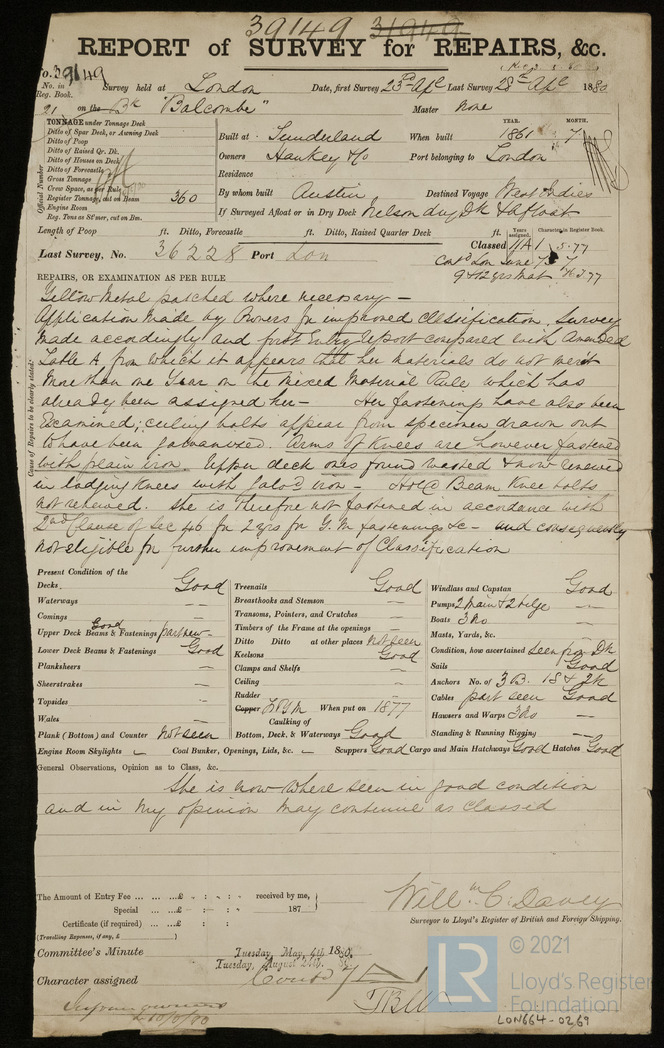 39149 31949
REPORT of SURVEY for REPAIRS, &c.
No. 39149
No. in Reg. Book. Survey held at London Date, first Survey 23rd Apl Last Survey 28th Apl 1880
91 on the Bk "Balcombe" Master None
TONNAGE under Tonnage Deck
Ditto of Spar Deck, or Awning Deck
Ditto of Poop
Ditto of Raised Qr. Dk.
Ditto of Houses on Deck
Ditto of Forecastle
Gross Tonnage
Crew Space, as per Rule
Register Tonnage, cut on Beam 360
Engine Room
Reg. Tons as St'mer, cut on Bm.
Official Number
YEAR. MONTH.
Built at Sunderland When built 1861 7
Owners Hankey & Co Port belonging to London
Residence
By whom built Austin Destined Voyage West Indies
If Surveyed Afloat or in Dry Dock Nelson dry Dk & Afloat
Length of Poop ft. Ditto, Forecastle ft. Ditto, Raised Quarter Deck ft. Years assigned. Character in Register Book.
Last Survey, No. 36228 Port Lon Classed 11A1 5.77
REPAIRS, OR EXAMINATION AS PER RULE
Cause of Repairs to be clearly stated.
Yellow Metal patched where necessary —
Application made by Owners for improved Classification. Survey
made accordingly and first Entry report compared with Amended
Table A from which it appears that her materials do not merit
more than one Year on the Mixed Material Rule which has
already been assigned her — Her fastenings have also been
Examined; ceiling bolts appear from specimen drawn out
to have been galvanized. Arms of Knees are however fastened
with plain iron. Upper deck ones found wasted & now renewed
in lodging Knees with Galvd iron — Hold Beam Knee bolts
not renewed. She is therefore not fastened in accordance with
2nd Clause of Sec 46 for 2 yrs for Y. M fastenings &c — and consequently
not eligible for further improvement of Classification
Present Condition of the
Decks Good
Waterways —
Comings —
Upper Deck Beams & Fastenings Good part new
Lower Deck Beams & Fastenings Good
Planksheers —
Sheerstrakes —
Topsides —
Wales —
Plank (Bottom) and Counter Not seen
Treenails Good
Breasthooks and Stemson —
Transoms, Pointers, and Crutches —
Timbers of the Frame at the openings —
Ditto Ditto at other places Not seen
Keelsons Good
Clamps and Shelfs —
Ceiling —
Rudder —
Copper YM When put on 1877
Caulking of
Bottom, Deck, & Waterways Good
Windlass and Capstan Good
Pumps 2 Main & 2 bilge
Boats 3 No
Masts, Yards, &c. —
Condition, how ascertained seen from Dk
Sails Good
Anchors No. of 3 B. 1 S & 2 K
Cables part seen Good
Hawsers and Warps 3 No —
Standing & Running Rigging —
Engine Room Skylights — Coal Bunker, Openings, Lids, &c. — Scuppers Good Cargo and Main Hatchways Good Hatches Good
General Observations, Opinion as to Class, &c.
She is now where seen in good condition
and in my opinion may continue as classed
The Amount of Entry Fee ... ... ...£ : : received by me,
Special ... ...£ : : 187
Certificate (if required) ... ...£ : :
(Travelling Expenses, if any, £ )
Willm C. Davey
Surveyor to Lloyd's Register of British and Foreign Shipping.
Committee's Minute Tuesday, May, 4th, 1880.
Tuesday, August 24th.
Character assigned
LR © 2021
Lloyd's Register
Foundation
LON664-0269